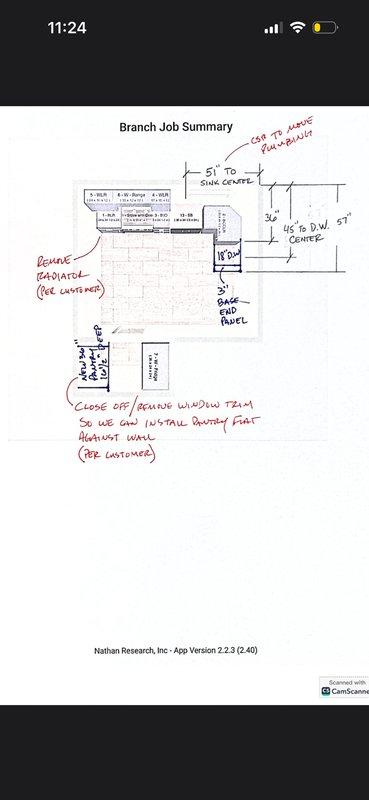 11:24
Branch Job Summary
CSR TO MOVE
PLUMBING
51" TO
SINK CENTER
5 - WLR
6 - W - Range
4 - WLR
36"
45" TO D.W.
CENTER
57"
18" D.W.
REMOVE
RADIATOR
(PER CUSTOMER)
3"
BASE
END
PANEL
NEW 36"
PANTRY
16 1/2" DEEP
CLOSE OFF/REMOVE WINDOW TRIM
SO WE CAN INSTALL PANTRY FLAT
AGAINST WALL
(PER CUSTOMER)
Nathan Research, Inc - App Version 2.2.3 (2.40)
Scanned with
CamScanne